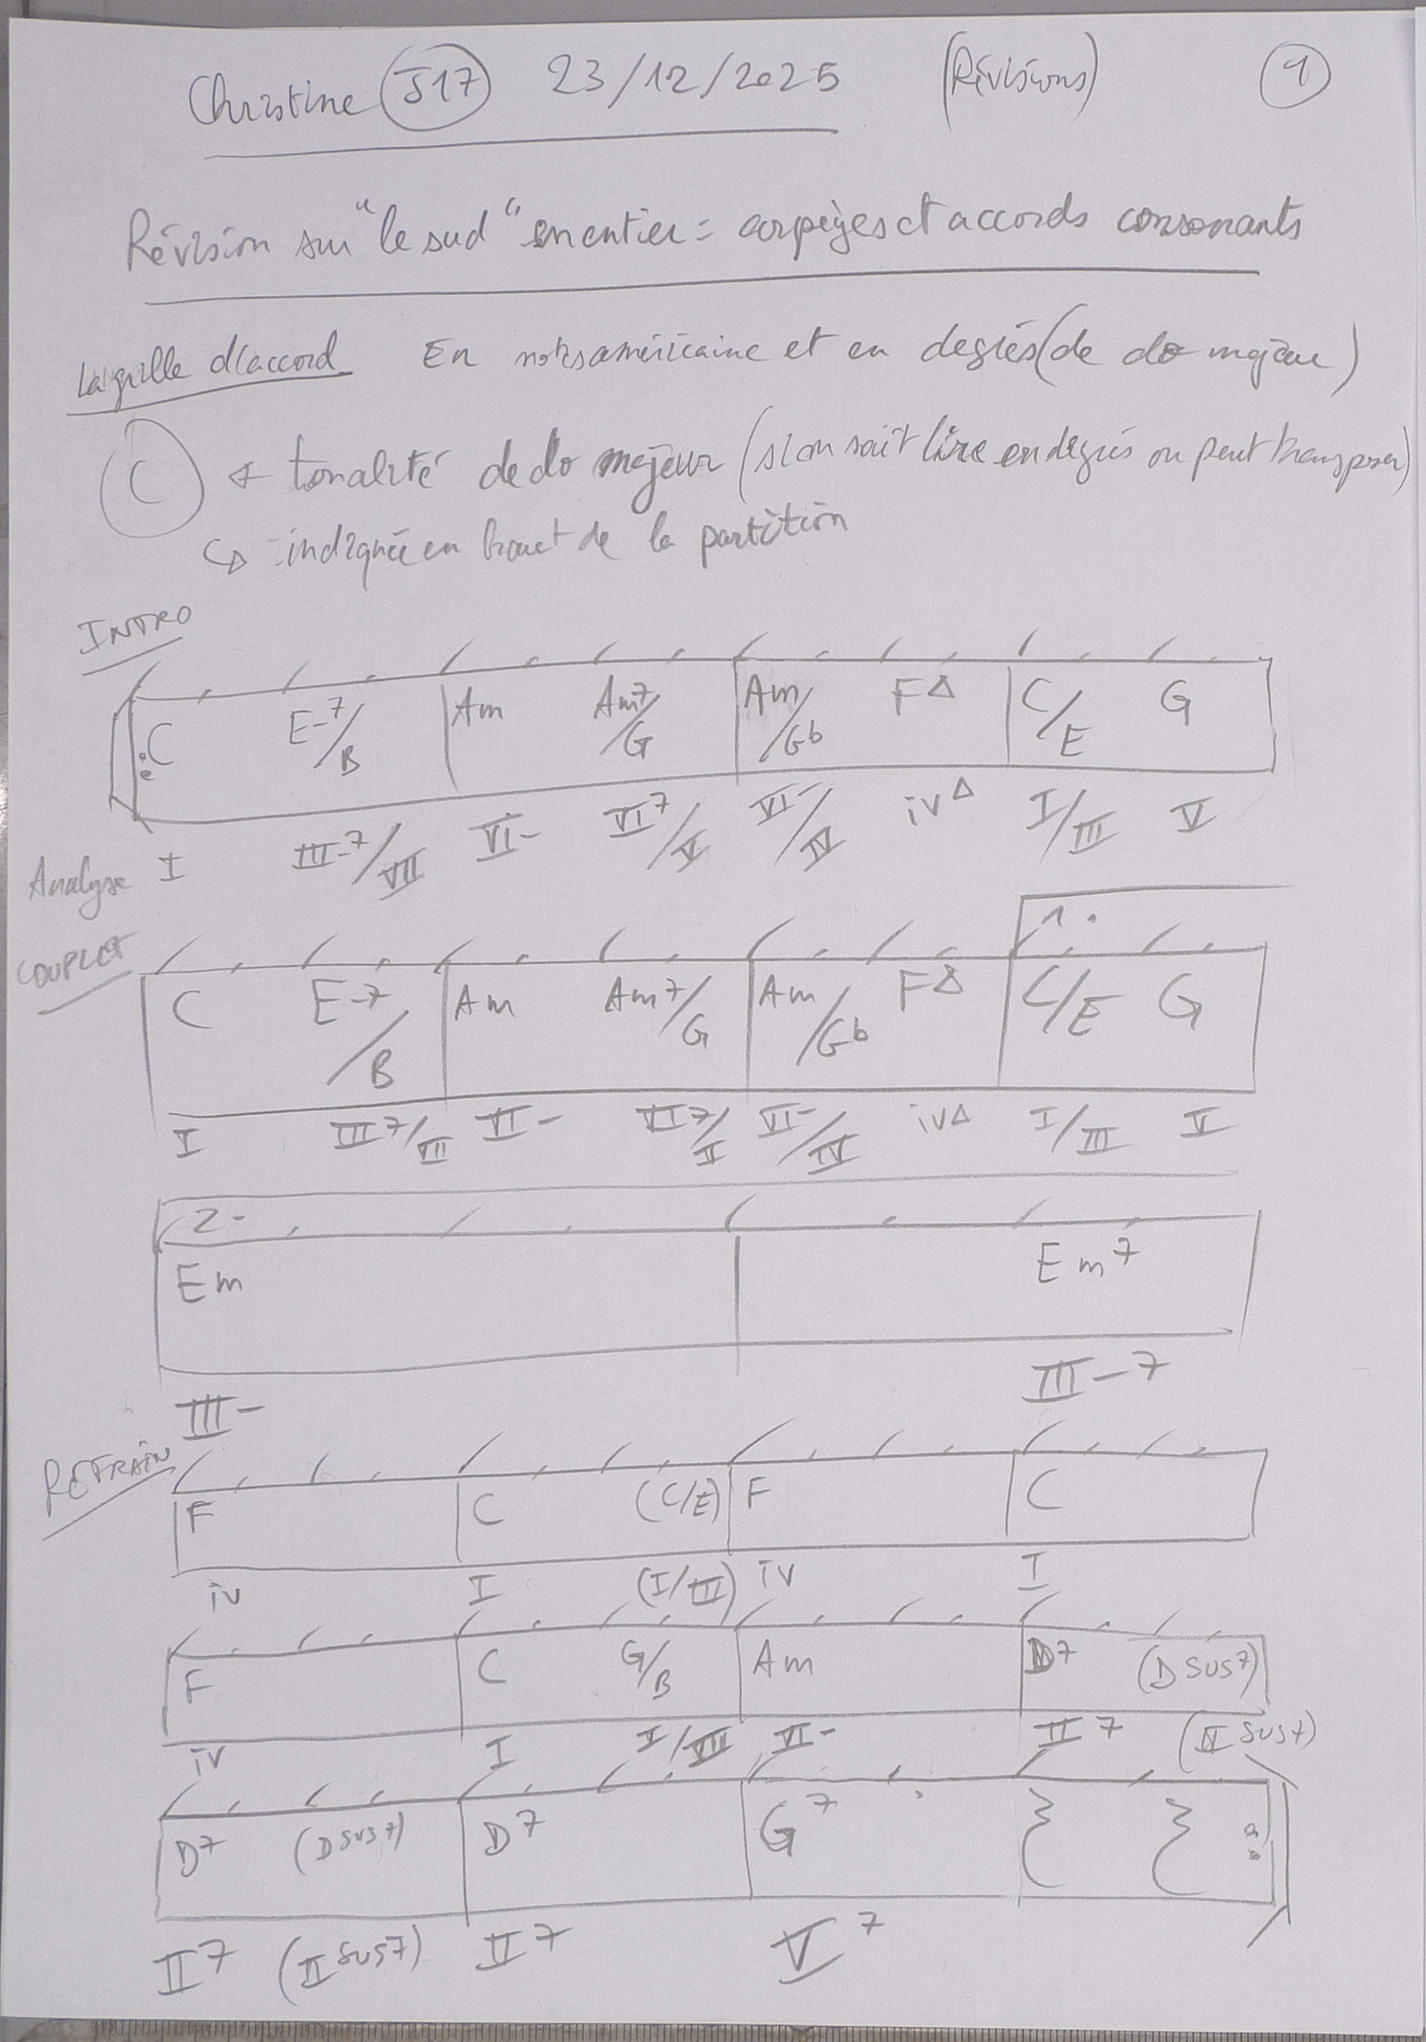 Christine J17 23/12/2025 (Révisions) 1
Révision sur "le sud" en entier = arpèges et accords consonants
La grille d'accord En notes américaine et en degrés (de do majeur)
C tonalité de do majeur (si on sait lire en degrés on peut transposer)
↳ indiquée en haut de la partition
INTRO
C E-7/B Am Am7/G Am/Gb FΔ C/E G
Analyse I III-7/VII VI- VI7/V VI-/IV ivΔ I/III V
1.
COUPLET
C E-7/B Am Am7/G Am/Gb FΔ C/E G
I III7/VII VI- VI7/II VI-/IV ivΔ I/III V
2-
Em Em7
III- III-7
REFRAIN
F C (C/E) F C
iv I (I/III) iv I
F C G/B Am D7 (Dsus7)
iv I I/VII VI- II7 (IIsus7)
D7 (Dsus7) D7 G7
II7 (IIsus7) II7 V7